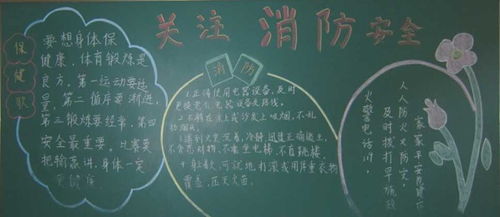 关注 消防 安全
保健歌
要想身体保
健康,体育锻炼是
良方,第一运动要适
量,第二循序要渐进,
第三锻炼要经常,第四
安全最重要,比赛莫
把输赢讲,身体一定
更健康
消防
1.正确使用电器设备,及时
更换老化电器设备及线路。
2.不躺在床上或沙发上吸烟,不乱
扔烟头。
3.遇到火灾沉着、冷静,迅速正确逃生,
不贪恋财物、不乘坐电梯、不盲目跳楼。
身上着火,可就地打滚或用厚重衣物
覆盖,压灭火苗。
人人防火又防灾,
家家平安
及时拨打早施救
火警电话119,